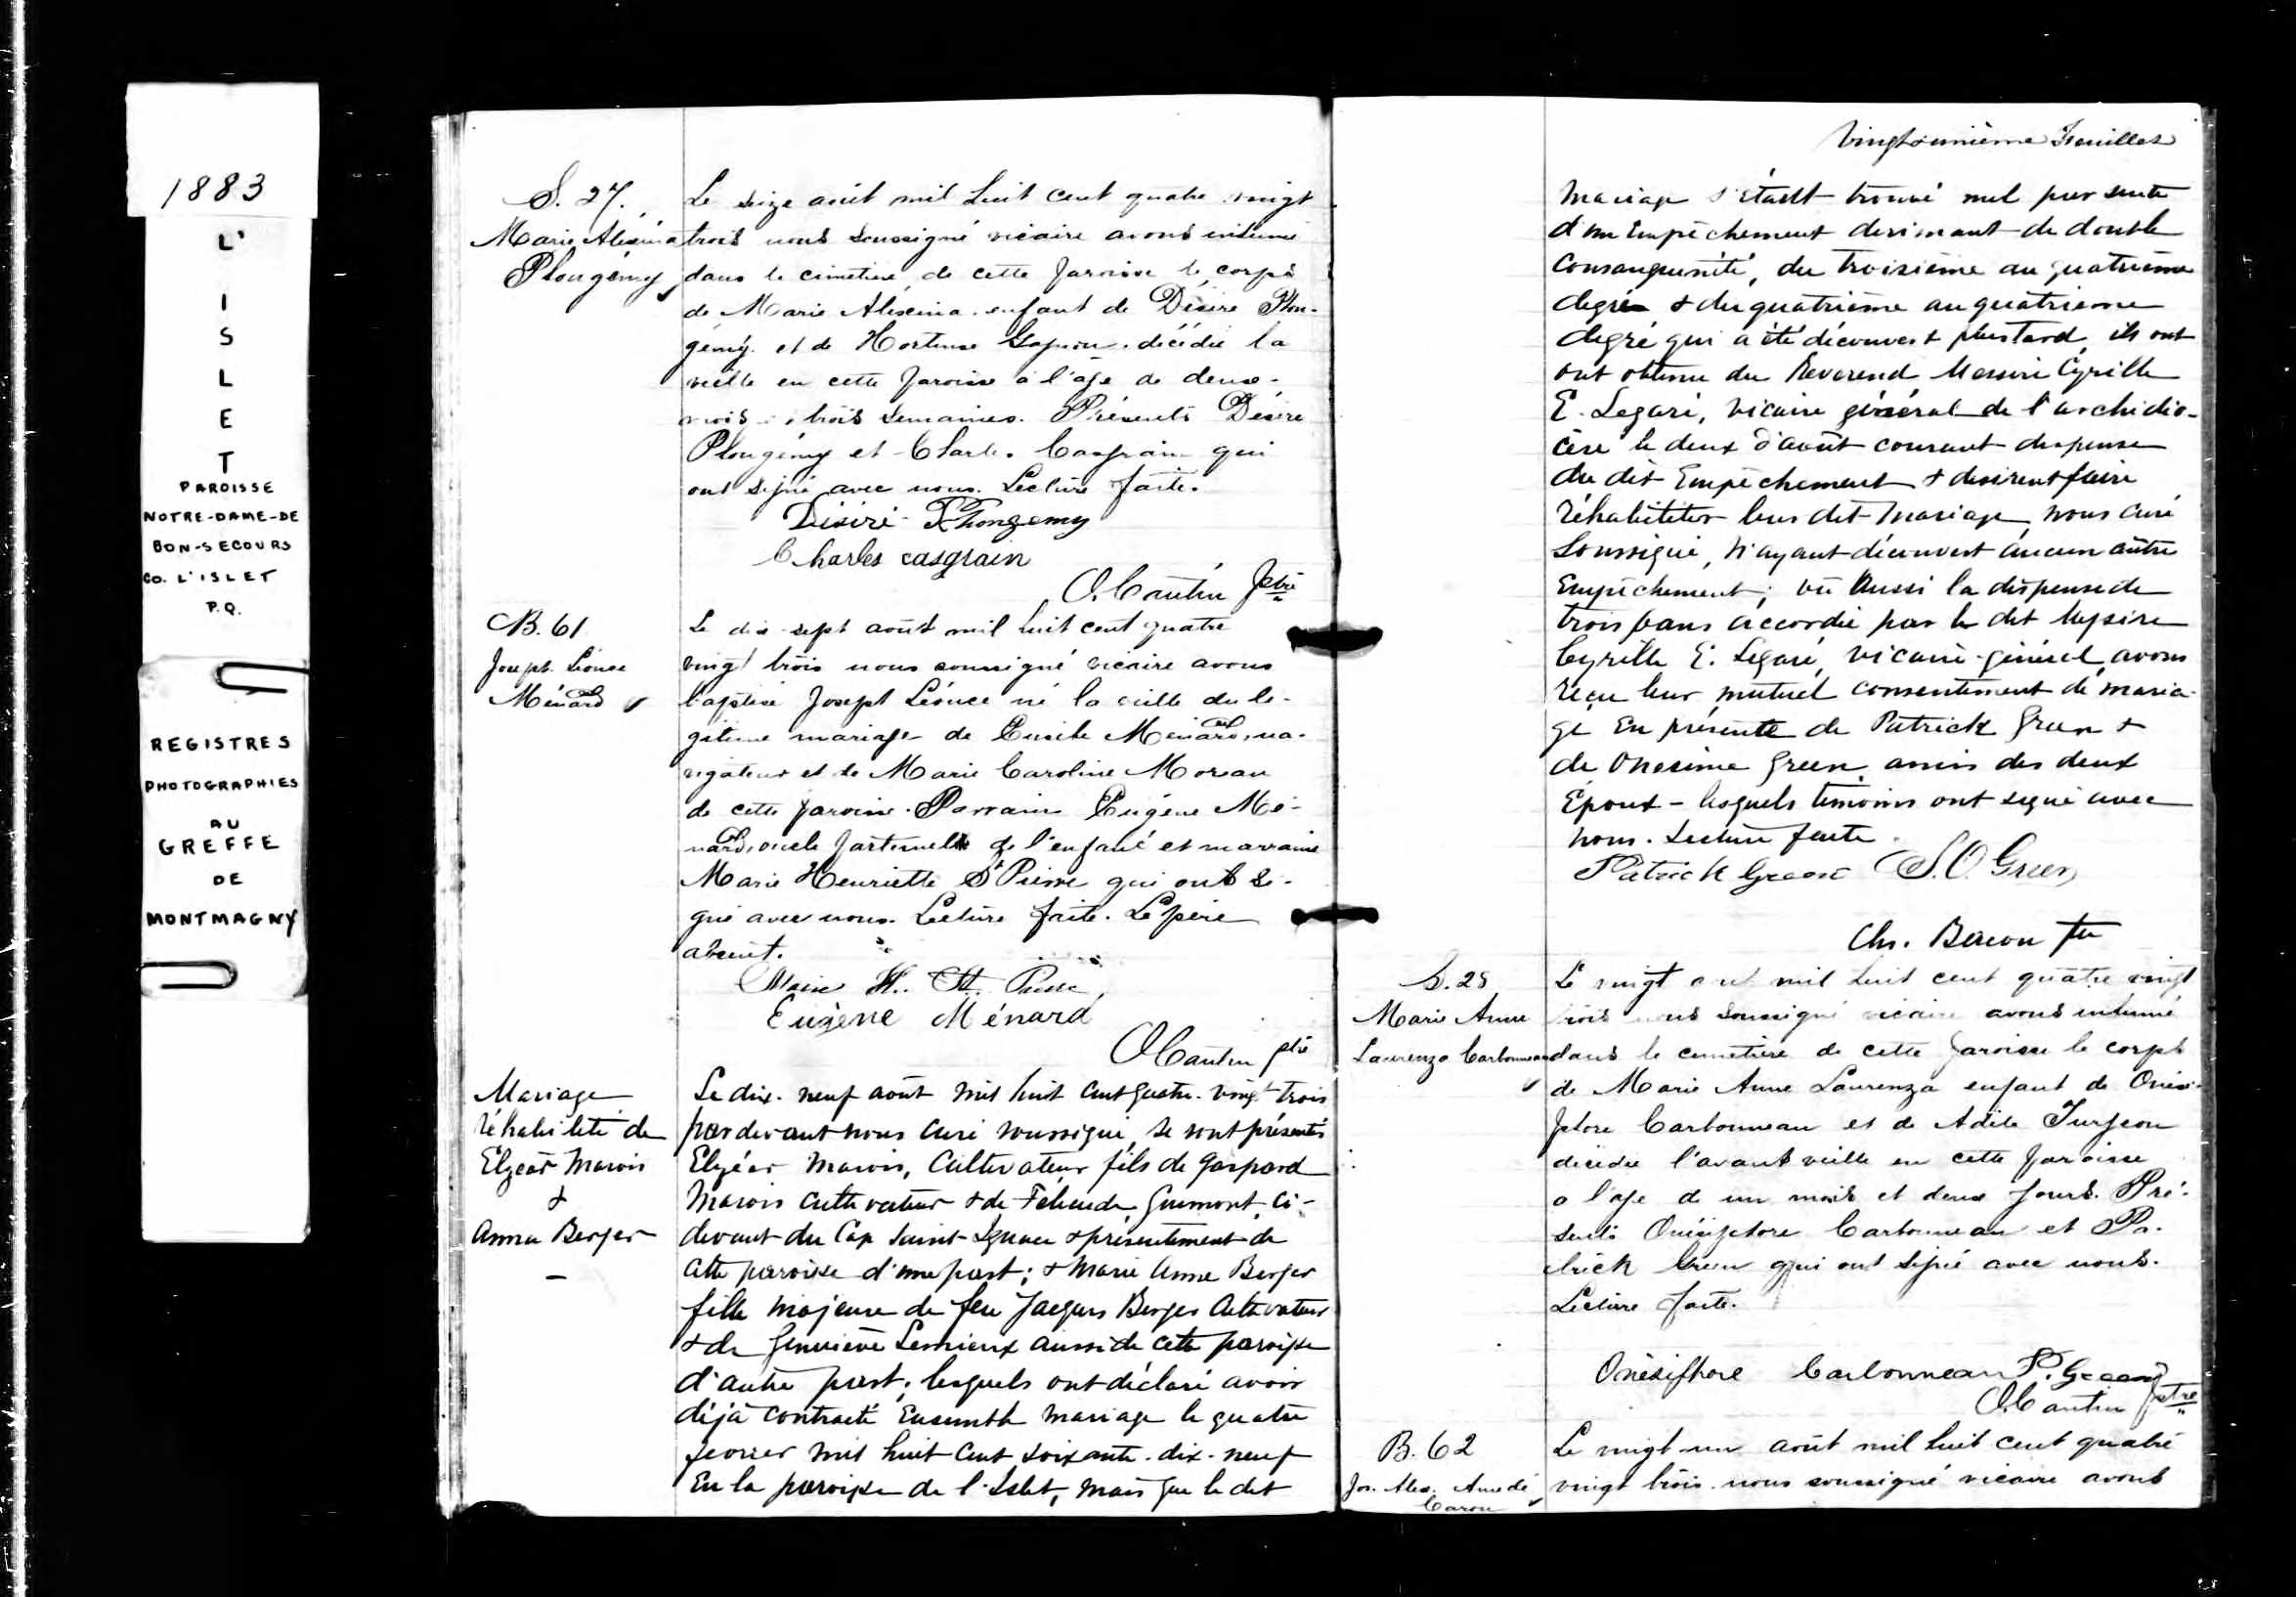 1883
L'
I
S
L
E
T
PAROISSE
NOTRE-DAME-DE
BON-SECOURS
CO. L'ISLET
P.Q.
REGISTRES
PHOTOGRAPHIES
AU
GREFFE
DE
MONTMAGNY
S. 27.
Marie Alexina
Plougémy
Le seize août mil huit cent quatre vingt
trois nous soussigné vicaire avons inhumé
dans le cimetière de cette paroisse le corps
de Marie Alexina enfant de Désiré Plou-
gémy et de Hortense Gagnon décédée la
veille en cette paroisse à l'âge de deux
mois trois semaines. Présents Désiré
Plougémy et Charles Casgrain qui
ont signé avec nous. Lecture faite.
Désiré Plougemy
Charles casgrain
O. Cantin ptre
B. 61
Joseph Léonce
Ménard
Le dix-sept août mil huit cent quatre
vingt trois nous soussigné vicaire avons
baptisé Joseph Léonce né la veille du lé-
gitime mariage de Eusèbe Ménard, na-
vigateur et de Marie Caroline Moreau
de cette paroisse. Parrain Eugène Mé-
nard, oncle paternel de l'enfant et marraine
Marie Henriette St Pierre qui ont si-
gné avec nous. Lecture faite. Le père
absent.
Marie H. St. Pierre
Eugène Ménard
O Cantin ptre
Mariage
réhabilité de
Elzéar Marois
&
Anna Berger
Le dix-neuf août mil huit cent quatre-vingt-trois
par devant nous curé soussigné, se sont présentés
Elzéar Marois, Cultivateur, fils de Gaspard
Marois cultivateur & de Guimont, ci-
devant du Cap Saint-Ignace & présentement de
cette paroisse d'une part; & Marie Anne Berger
fille majeure de feu Jacques Berger Cultivateur
& de Geneviève Lemieux aussi de cette paroisse
d'autre part; lesquels ont déclaré avoir
déjà contracté Ensemble mariage le quatre
fevrier mil huit cent soixante-dix-neuf
En la paroisse de l'Islet, mais que le dit
Vingt-unième Feuillet
mariage s'étant trouvé nul par suite
d'un Empêchement dirimant de double
Consanguinité, du troisième au quatrième
degré & du quatrième au quatrième
degré qui a été découvert plus tard, ils ont
ont obtenu du Reverend Messire Cyrille
E. Legaré, vicaire général de l'archidio-
cèse le deux d'août courant dispense
du dit Empêchement & desirent faire
réhabiliter leur dit mariage, nous curé
soussigné, n'ayant découvert aucun autre
Empêchement; vu Aussi la dispense de
trois bans accordée par le dit Messire
Cyrille E. Legaré, vicaire-général, avons
reçu leur mutuel consentement de maria-
ge En présence de Patrick Green &
de Onesime Green, amis des deux
Epoux - lesquels témoins ont signé avec
nous. Lecture faite.
Patrick Green S. O. Green
Chs. Bacon ptre
S. 28
Marie Anne
Laurenza Carbonneau
Le vingt août mil huit cent quatre vingt
trois nous soussigné vicaire avons inhumé
dans le cimetière de cette paroisse le corps
de Marie Anne Laurenza enfant de Onési-
phore Carbonneau et de Adèle Turgeon
décédée l'avant veille en cette paroisse
a l'âge de un mois et deux jours. Pré-
sents Onésiphore Carbonneau et Pa-
trick Green qui ont signé avec nous.
Lecture faite.
Onésiphore Carbonneau P. Green
O. Cantin ptre
B. 62
Jos. Alex. Amedé
Caron
Le vingt-un août mil huit cent quatre
vingt trois nous soussigné vicaire avons